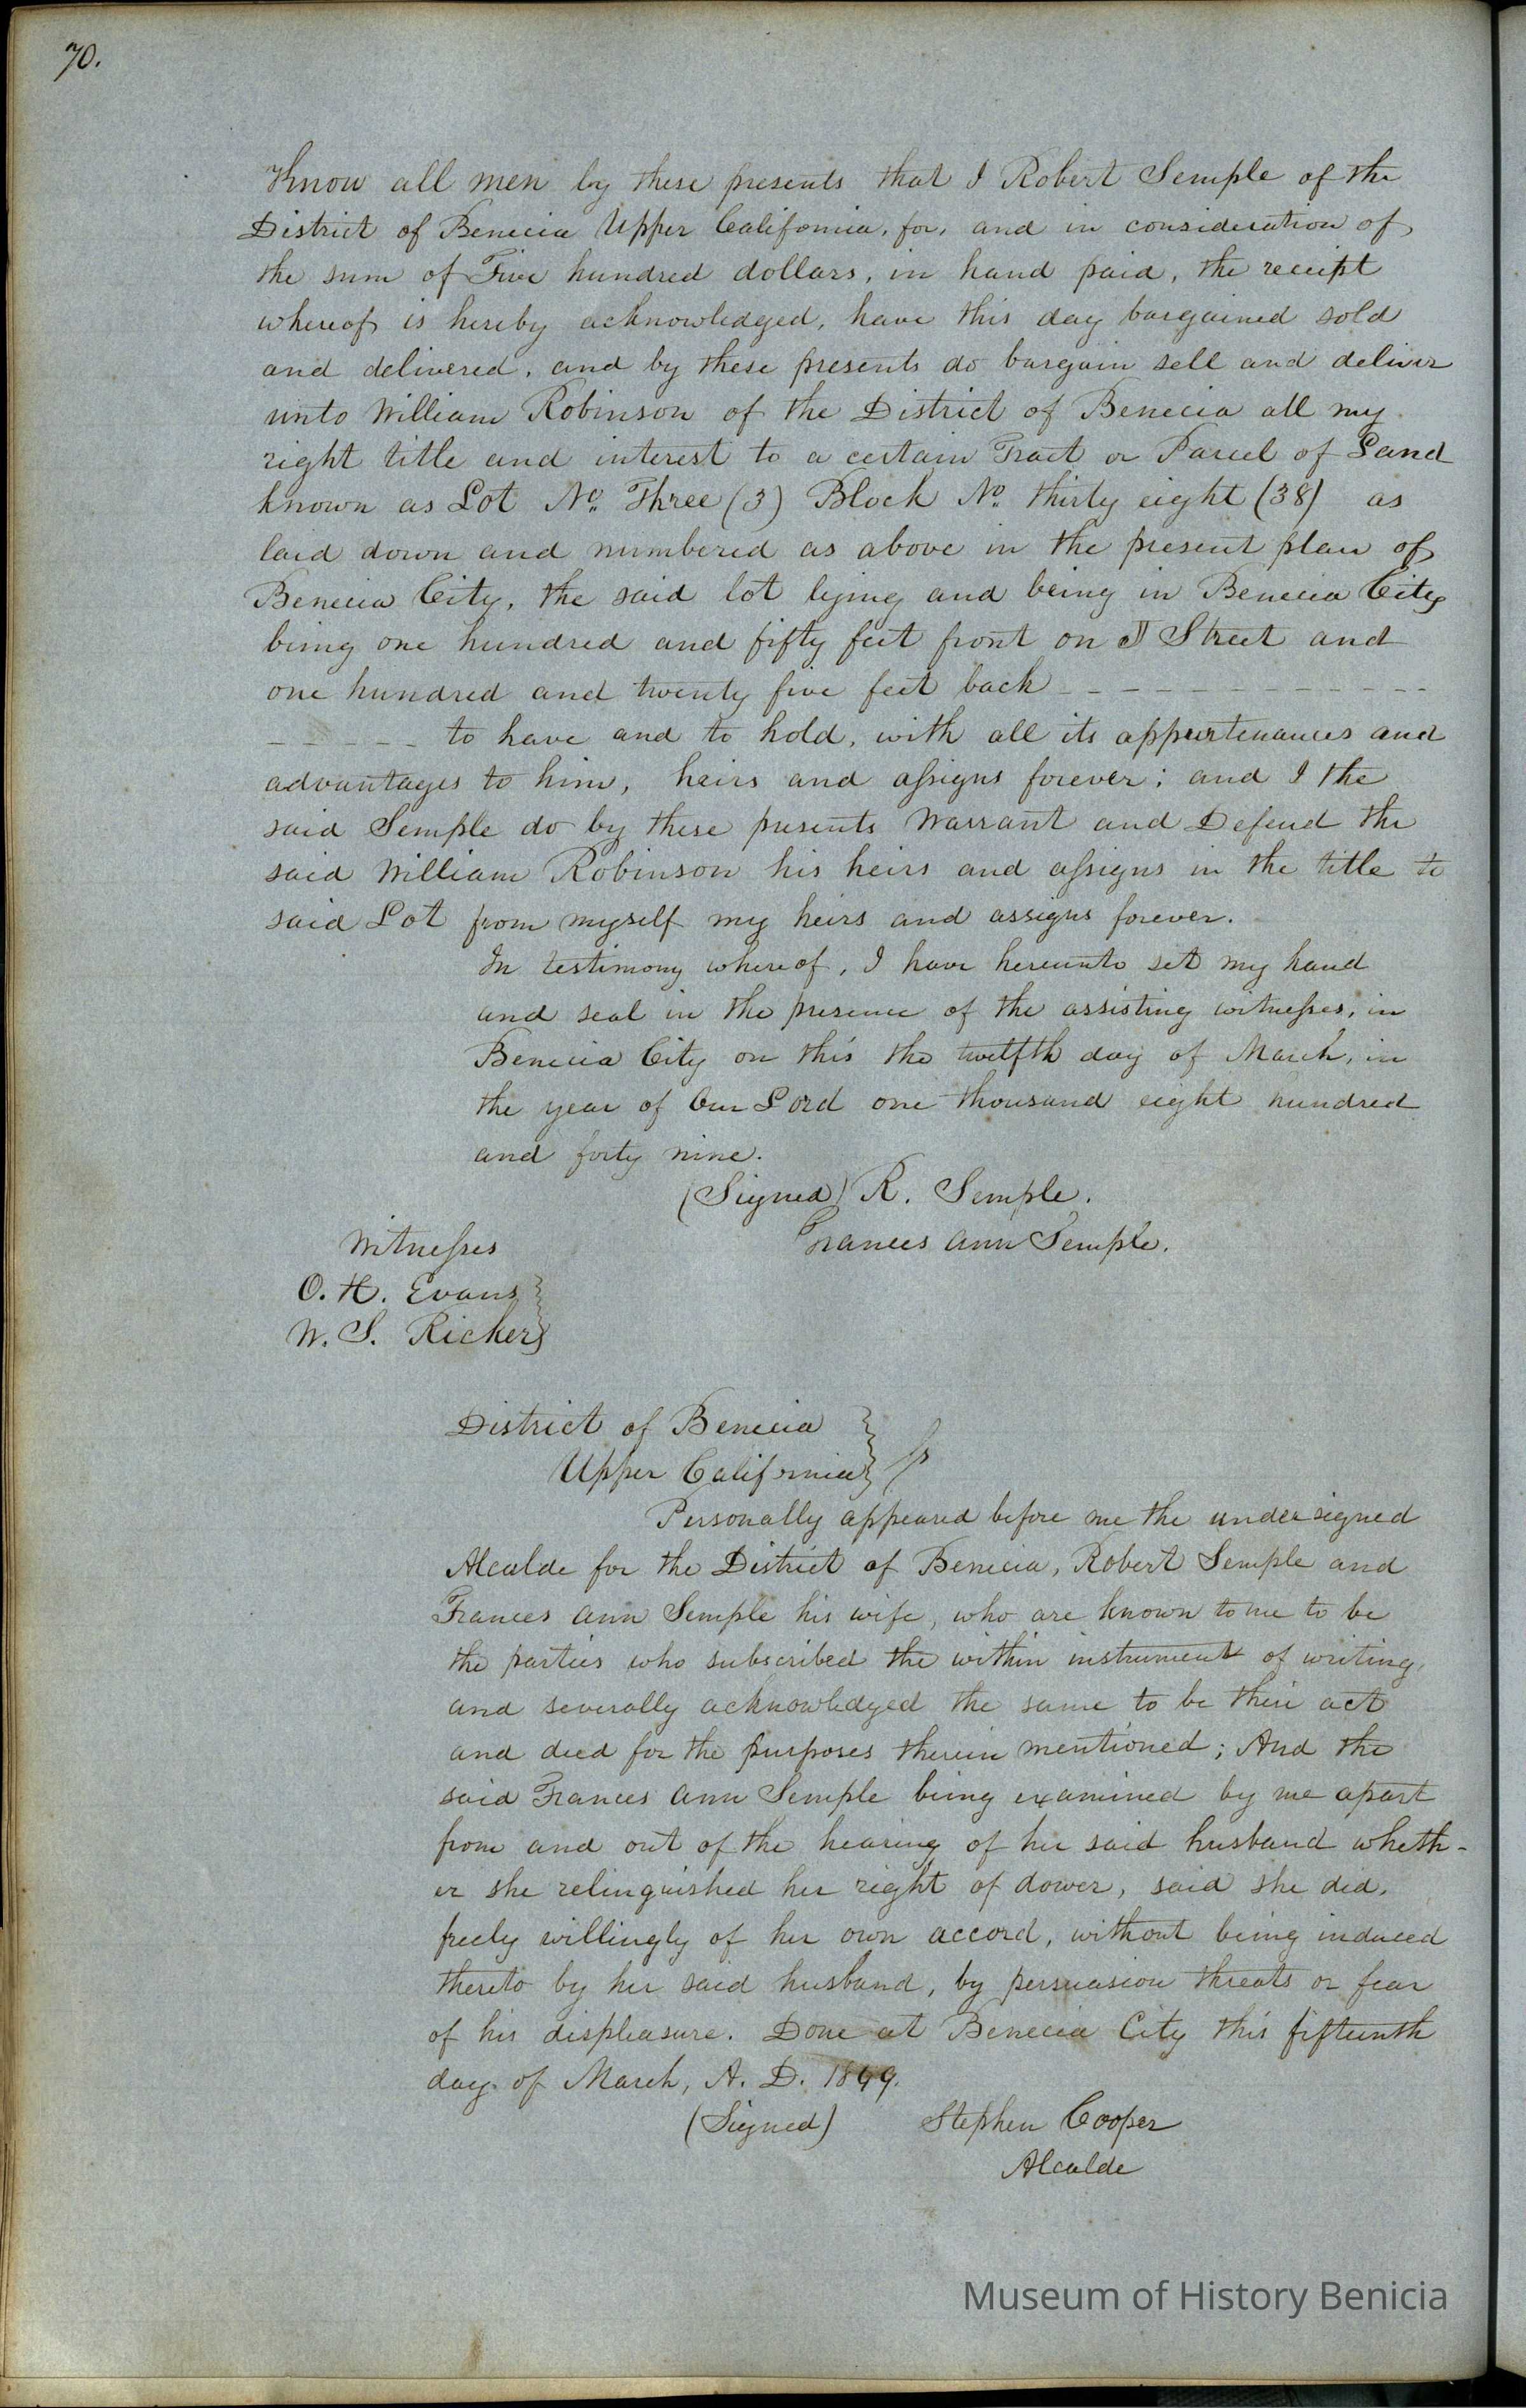 70.
Know all men by these presents that I Robert Semple of the
District of Benicia Upper California, for, and in consideration of
the sum of Five hundred dollars, in hand paid, the receipt
whereof is hereby acknowledged, have this day bargained sold
and delivered, and by these presents do bargain sell and deliver
unto William Robinson of the District of Benecia all my
right title and interest to a certain Tract or Parcel of Land
known as Lot No. Three (3) Block No. thirty eight (38) as
laid down and numbered as above in the present plan of
Benecia City, the said lot lying and being in Benecia City
being one hundred and fifty feet front on Street and
one hundred and twenty five feet back - - - - - - - - - - - -
- - - - - to have and to hold, with all its appurtenances and
advantages to him, heirs and assigns forever; and I the
said Semple do by these presents Warrant and Defend the
said William Robinson his heirs and assigns in the title to
said Lot from myself my heirs and assigns forever.
In testimony whereof, I have hereunto set my hand
and seal in the presence of the assisting witnesses, in
Benecia City on this the twelfth day of March, in
the year of Our Lord one thousand eight hundred
and forty nine.
(Signed) R. Semple.
Frances Ann Semple.
Witnesses
O. H. Evans
W. S. Ricker
District of Benecia
Upper California } ss
Personally appeared before me the undersigned
Alcalde for the District of Benecia, Robert Semple and
Frances Ann Semple his wife, who are known to me to be
the parties who subscribed the within instrument of writing,
and severally acknowledged the same to be their act
and deed for the purposes therein mentioned; And the
said Frances Ann Semple being examined by me apart
from and out of the hearing of her said husband wheth-
er she relinguished her right of dower, said she did,
freely willingly of her own accord, without being induced
thereto by her said husband, by persuasion threats or fear
of his displeasure. Done at Benecia City this fifteenth
day of March, A. D. 1849.
(Signed) Stephen Cooper
Alcalde
Museum of History Benicia